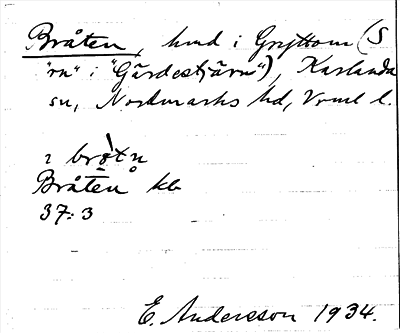 Bråten, hmd i Gryttom (S
"rn" i "Gärdestjärn"), Karlanda
sn, Nordmarks hd, Vrml l.
i brøtn
Bråten kb
37:3
E. Andersson 1934.